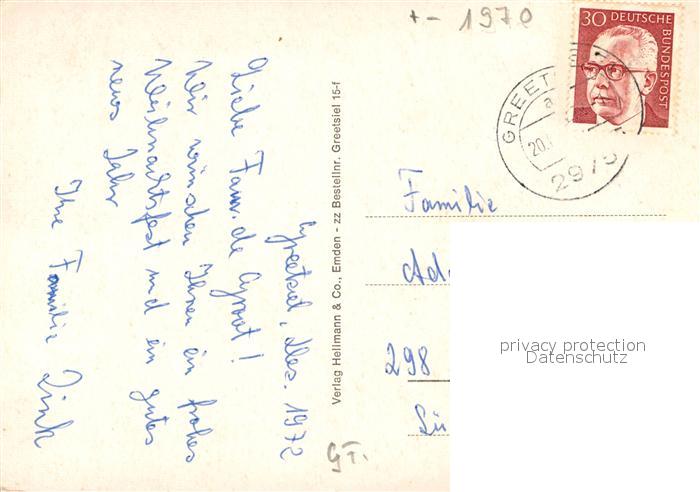 +- 1970
30 DEUTSCHE BUNDESPOST
GREET
a
20.
2975
Greetsiel, Dez. 1972
Liebe Fam. de Groot!
Wir wünschen Ihnen ein frohes
Weihnachtsfest und ein gutes
neues Jahr
Ihre Familie Zink
Verlag Hellmann & Co., Emden - zz Bestellnr. Greetsiel 15-f
Familie
Ad
298
privacy protection
Datenschutz
GT.